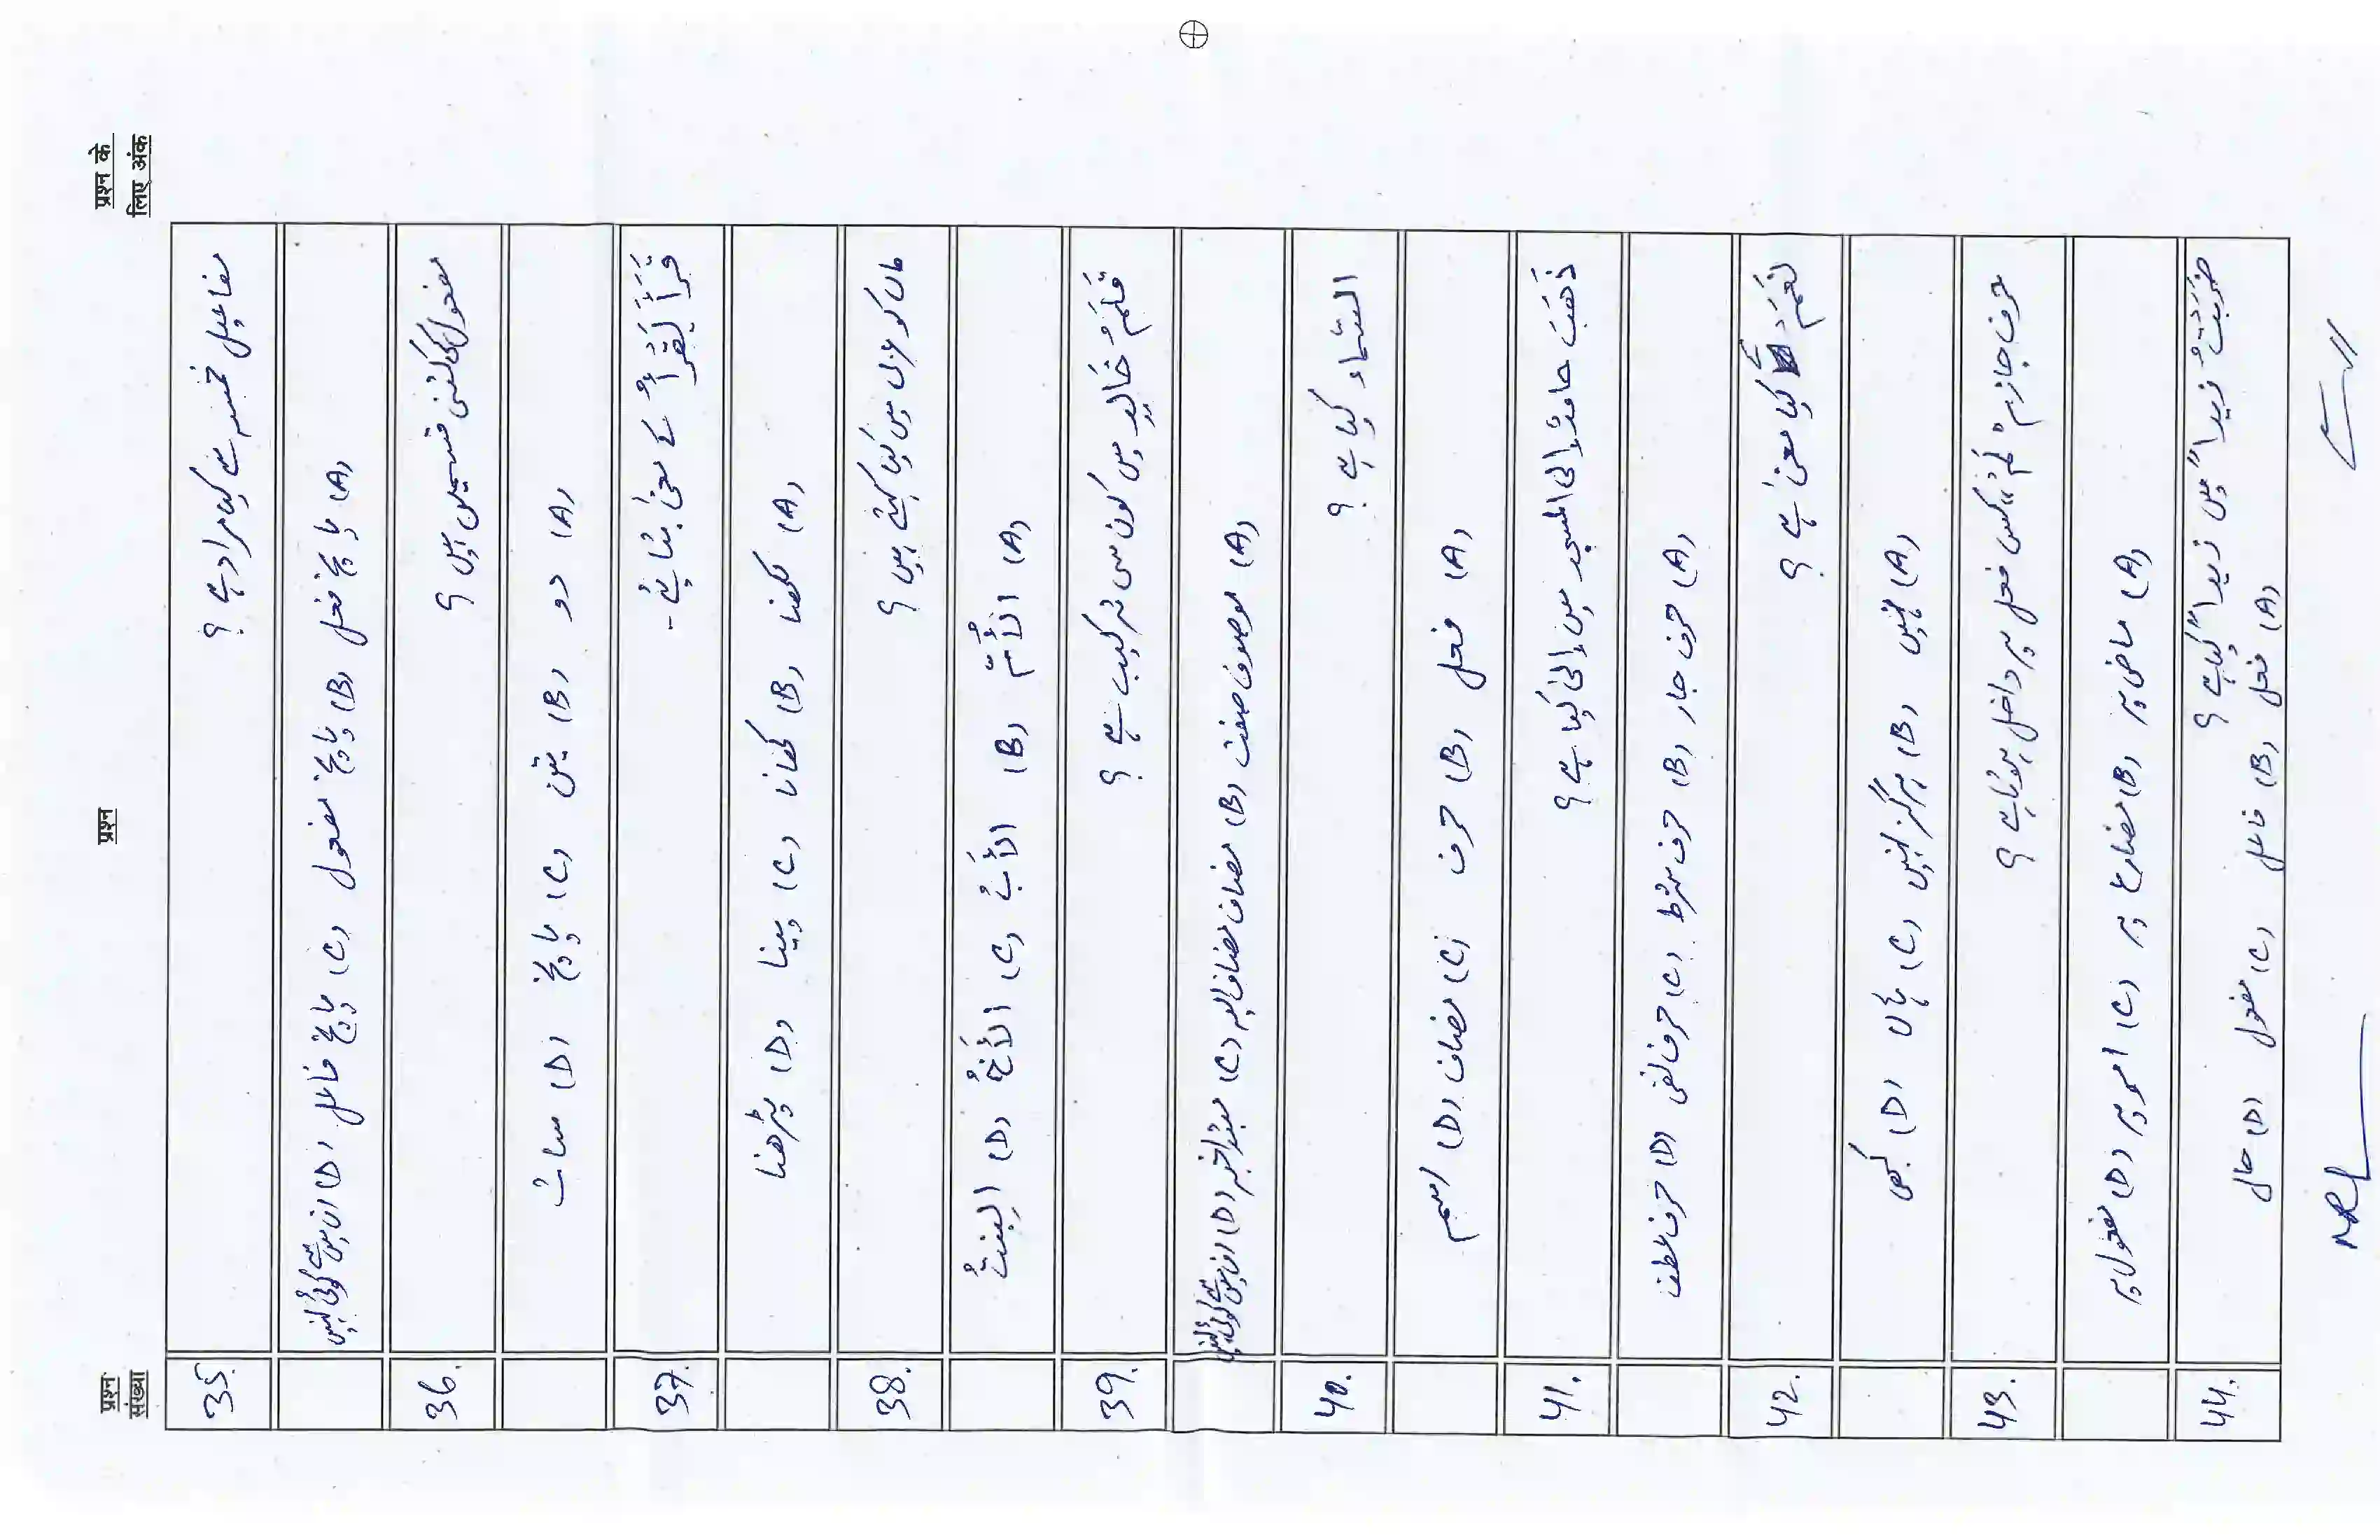 प्रश्न संख्या
प्रश्न
प्रश्न के लिए अंक
35. مفاعیل خمسہ سے کیا مراد ہے ؟
(A) پانچ فعل (B) پانچ مفعول (C) پانچ فاعل (D) ان میں سے کوئی نہیں
36. مفعول کی کتنی قسمیں ہیں ؟
(A) دو (B) تین (C) پانچ (D) سات
37. قَرَأَ يَقْرَأُ کے معنیٰ بتائیے -
(A) لکھنا (B) کھانا (C) پینا (D) پڑھنا
38. ماں کو عربی میں کیا کہتے ہیں ؟
(A) الأُمُّ (B) الأَبُ (C) الأَخُ (D) البِنتُ
39. قَلَمُ خَالِدٍ میں کون سی ترکیب ہے ؟
(A) موصوف صفت (B) مضاف مضاف الیہ (C) مبتدا خبر (D) ان میں سے کوئی نہیں
40. السَّمَاء کیا ہے ؟
(A) فعل (B) حرف (C) مضاف (D) اسم
41. ذَهَبَ حامدٌ إلى المسجد میں إلىٰ کیا ہے ؟
(A) حرف جار (B) حرف شرط (C) حرف نفی (D) حرف عطف
42. نَعَمْ کا کیا معنیٰ ہے ؟
(A) نہیں (B) ہرگز نہیں (C) ہاں (D) کبھی
43. حرف جازم "لَمْ" کس فعل پر داخل ہوتا ہے ؟
(A) ماضی پر (B) مضارع پر (C) امر پر (D) مفعول پر
44. ضَرَبْتُ زَيداً میں زيداً کیا ہے ؟
(A) فعل (B) فاعل (C) مفعول (D) حال